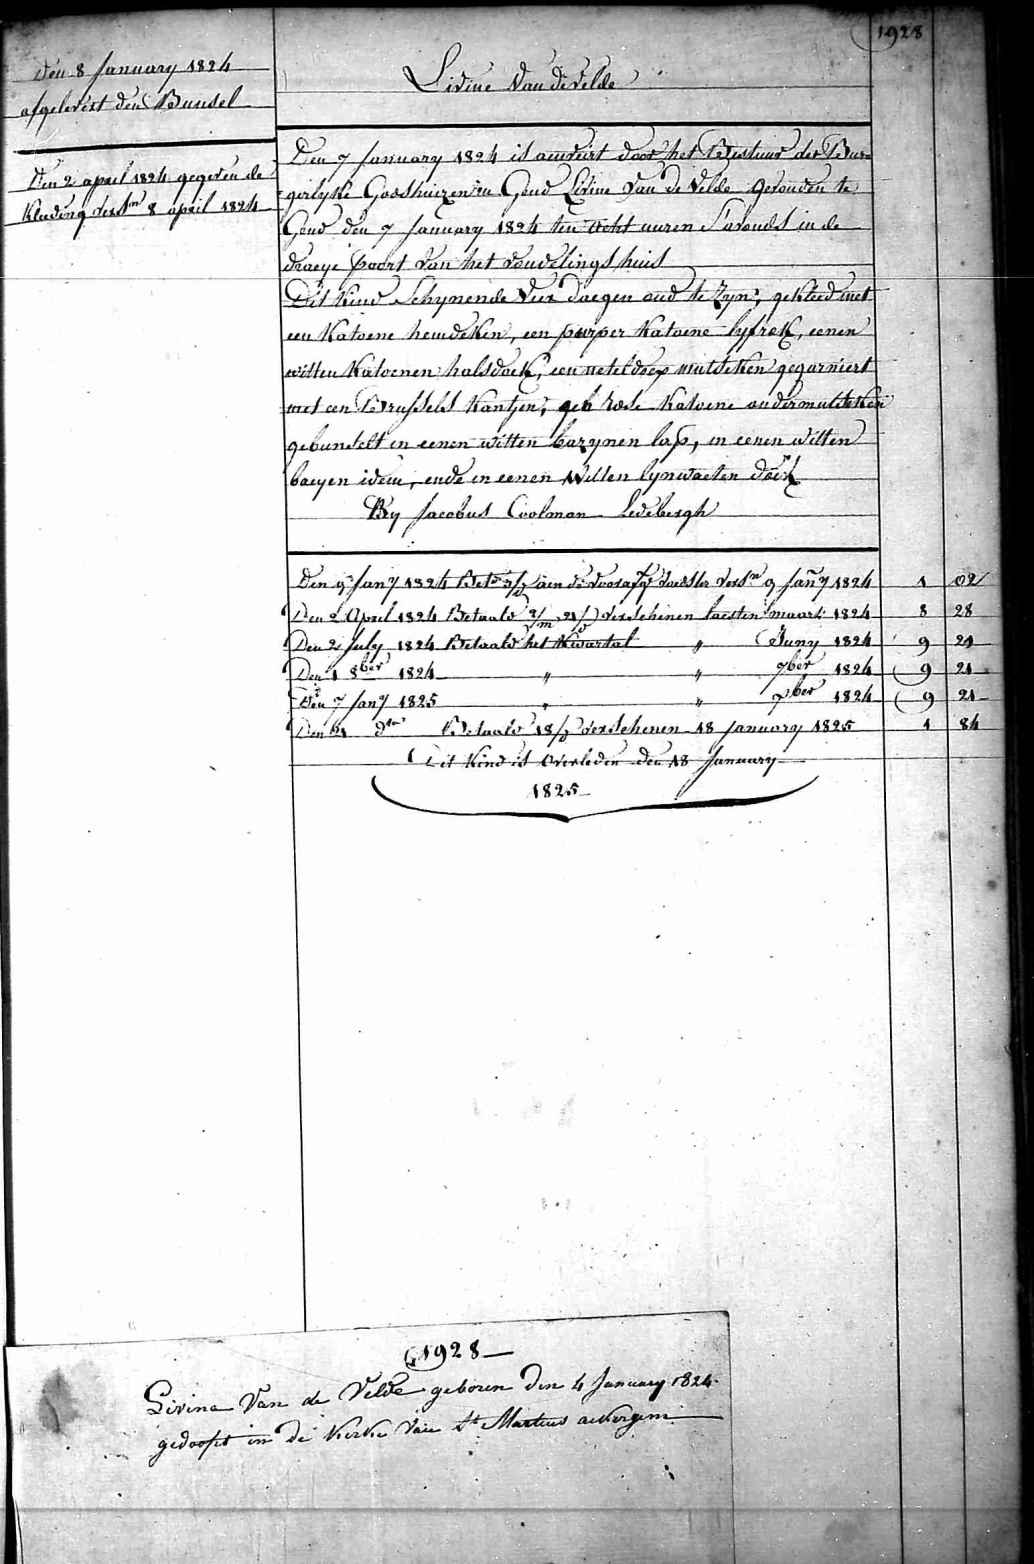 1928
Den 8 January 1824
afgelevert den Bunsel
Den 2 april 1824 gegeven de
kleeding versn 8 april 1824
Livine Van de Velde
Den 7 January 1824 is aenveirt door het Bestuur der Bur-
gerlyke Godshuizen in Gend Livine Van de Velde gevonden te
Gend den 7 January 1824 ten acht uuren S'avonds in de
draeye poort van het vondelingshuis
Dit kind Schynende vier daegen oud te zyn, gekleed met
een katoene hemdeken, een purper katoene lyfrok, eenen
witten katoenen halsdoek, een neteldoex mutsken gegarniert
met een Brussels kantjen, geb rode katoene ondermutsken
gebundelt in eenen witten bazynen lap, en eenen witten
baeyen idem, ende in eenen witten lynwaeten doek
By Jacobus Coolman Ledebergh
Den 9 Jany 1824 Bet aen de voedster versn 9 Jany 1824 1 02
Den 2 April 1824 Betaald 2/m 21/d verschenen laesten maart 1824 8 28
Den 2 July 1824 Betaald het kwartal " Juny 1824 9 21
Den 1 8ber 1824 " " 7ber 1824 9 21
Den 7 Jany 1825 " " xber 1824 9 21
Den 21 dto Betaald 18/d verschenen 18 January 1825 1 84
Dit kind is overleden den 18 January
1825
1928
Livina Van de Velde geboren den 4 January 1824
gedoopt in de kerke van St Martens ackergem